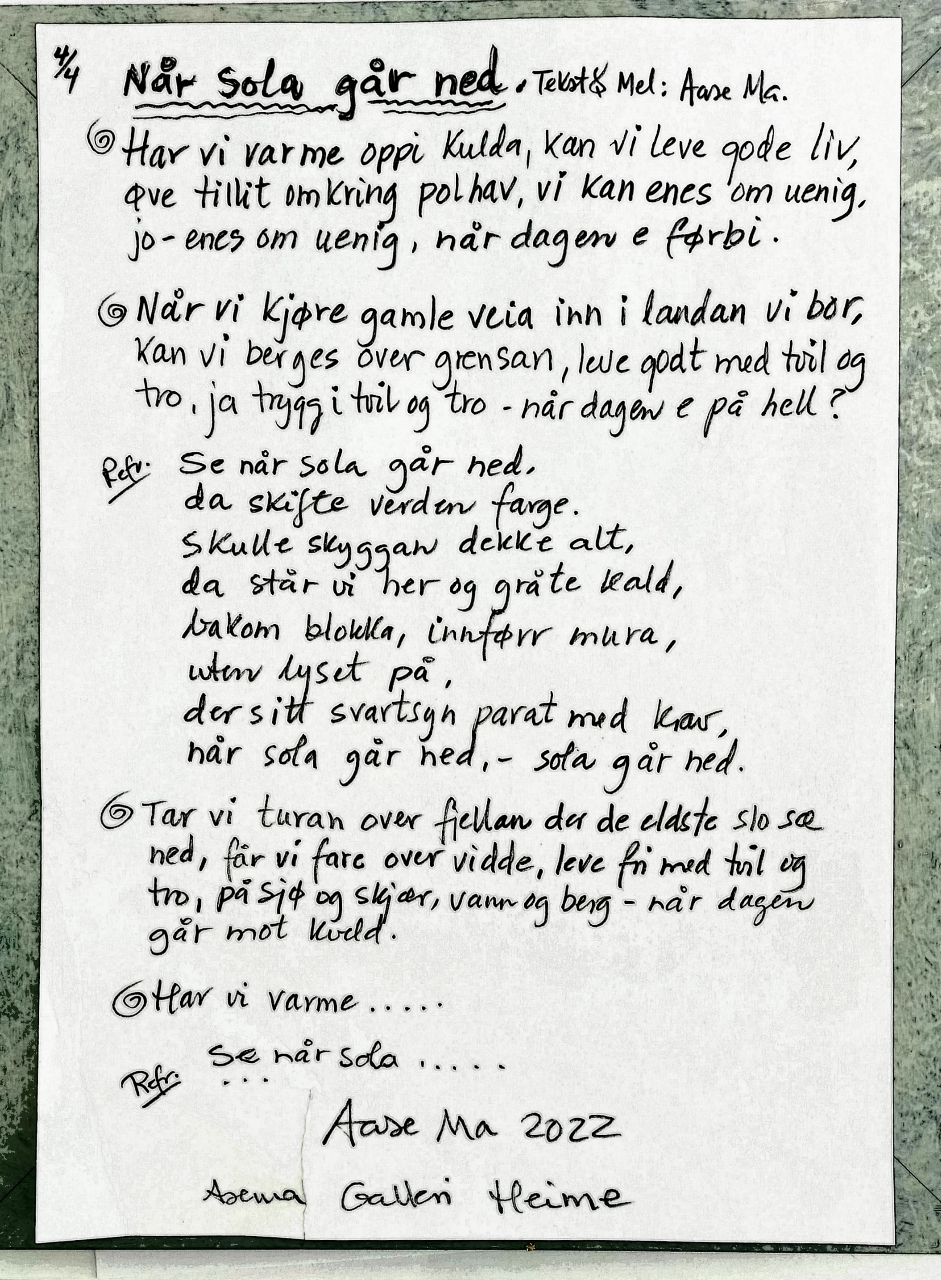 4/4 Når sola går ned. Tekst & Mel: Aase Ma.
Har vi varme oppi kulda, kan vi leve gode liv,
øve tillit omkring polhav, vi kan enes om uenig,
jo-enes om uenig, når dagen e førbi.
Når vi kjøre gamle veia inn i landan vi bor,
kan vi berges over grensan, leve godt med tvil og
tro, ja trygg i tvil og tro - når dagen e på hell?
Refr. Se når sola går ned.
da skifte verden farge.
Skulle skyggan dekke alt,
da står vi her og gråte kald,
bakom blokka, innførr mura,
uten lyset på,
der sitt svartsyn parat med krav,
når sola går ned,- sola går ned.
Tar vi turan over fjellan der de eldste slo sæ
ned, får vi fare over vidde, leve fri med tvil og
tro, på sjø og skjær, vann og berg - når dagen
går mot kveld.
Har vi varme.....
Se når sola .....
Refr. ...
Aase Ma 2022
Asema Galleri Heime